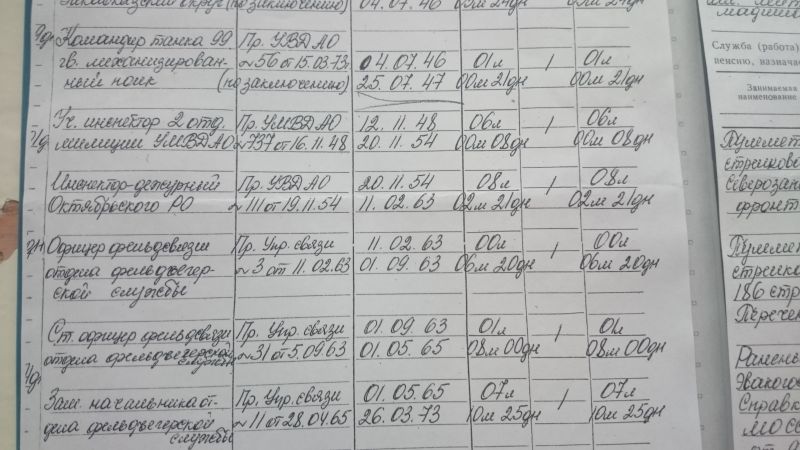 Закавказский округ (по заключению) 04.07.46 03м 24дн 03м 24дн
Командир танка 99 Пр. УВД АО
гв. механизирован- №56 от 15.03.73г 04.07.46 01л 1 01л
ный полк (по заключению) 25.07.47 00м 21дн 00м 21дн
Уч. инспектор 2 отд. Пр. УМВДАО 12.11.48 06л 1 06л
милиции УМВДАО №737 от 16.11.48 20.11.54 00м 08дн 00м 08дн
Инспектор-дежурный Пр. УВДАО 20.11.54 08л 1 08л
Октябрьского РО №111 от 19.11.54 11.02.63 02м 21дн 02м 21дн
Офицер фельдсвязи Пр. Упр. связи 11.02.63 00л 1 00л
отдела фельдъегер- №3 от 11.02.63 01.09.63 06м 20дн 06м 20дн
ской службы
Ст. офицер фельдсвязи Пр. Упр. связи 01.09.63 01л 1 01л
отдела фельдъегерской службы №31 от 5.09.63 01.05.65 08м 00дн 08м 00дн
Зам. начальника от- Пр. Упр. связи 01.05.65 07л 1 07л
дела фельдъегерской №11 от 28.04.65 26.03.73 10м 25дн 10м 25дн
службы
Служба (работа)
пенсию, назнача
Занимаемая
наименование
Пулемет
стрелков
Северозап
фронт
Пулемет
стрелко
186 стр
Перечен
Ранень
Эвакого
Справк